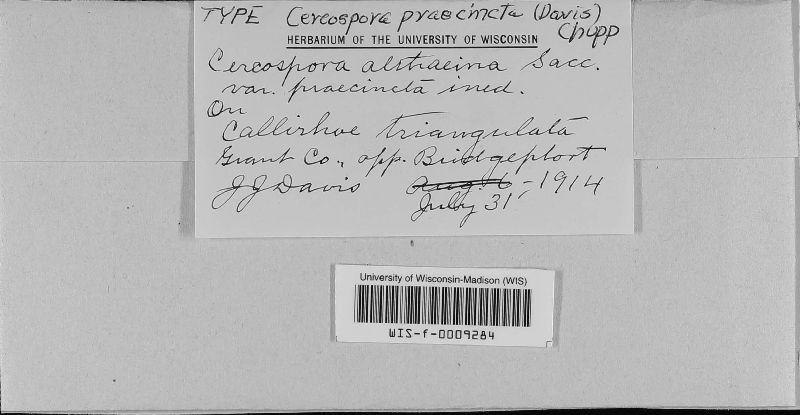 TYPE Cercospora praecincta (Davis) Chupp
HERBARIUM OF THE UNIVERSITY OF WISCONSIN
Cercospora althaeina Sacc.
var. praecincta ined.
On
Callirhoe triangulata
Grant Co., opp. Bridgeport
JJ Davis Aug. 6 - 1914
July 31
University of Wisconsin-Madison (WIS)
WIS-f-0009284